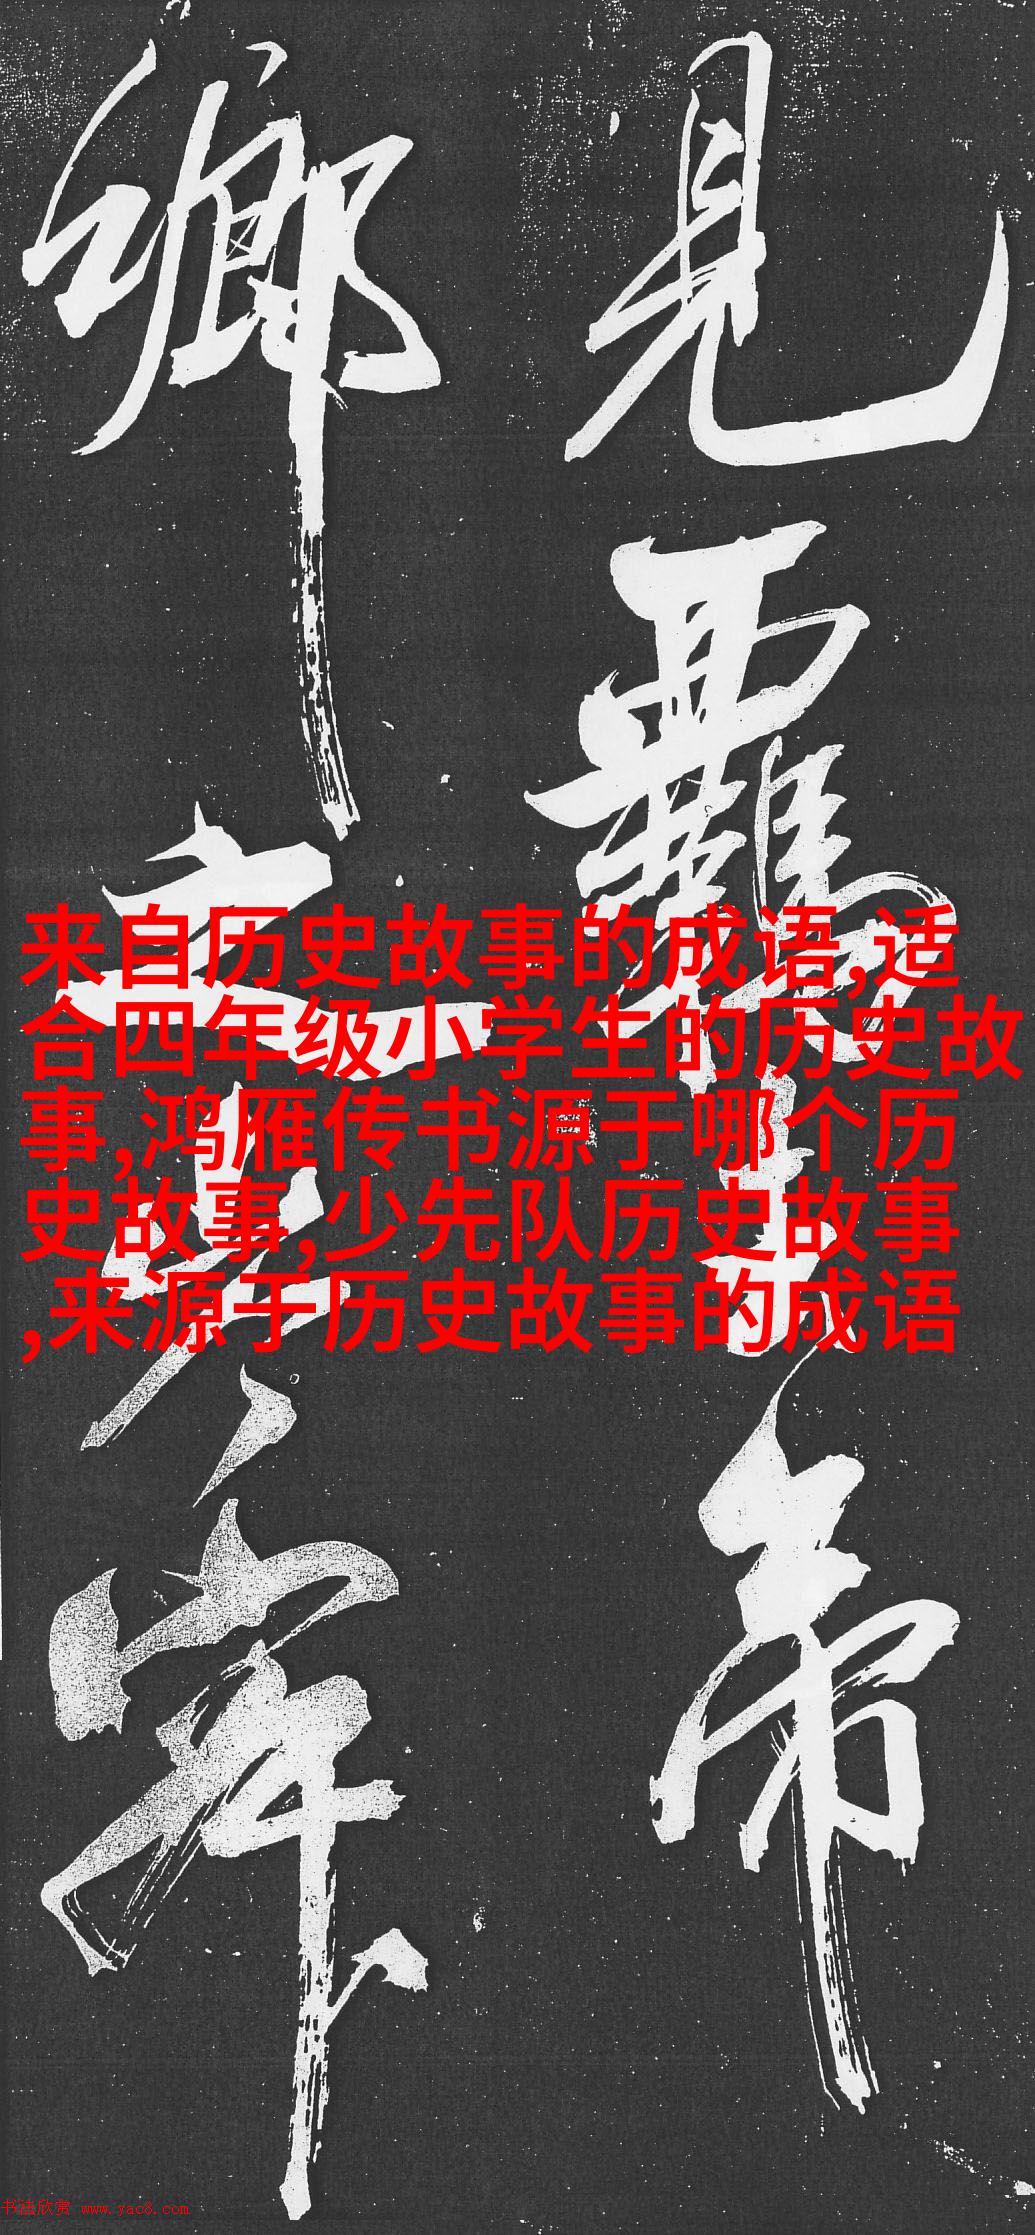 見羈帝
鄉之
来自历史故事的成语,适
合四年级小学生的历史故
事,鸿雁传书源于哪个历
史故事,少先队历史故事
,来源于历史故事的成语
书法欣赏 www.yac8.com